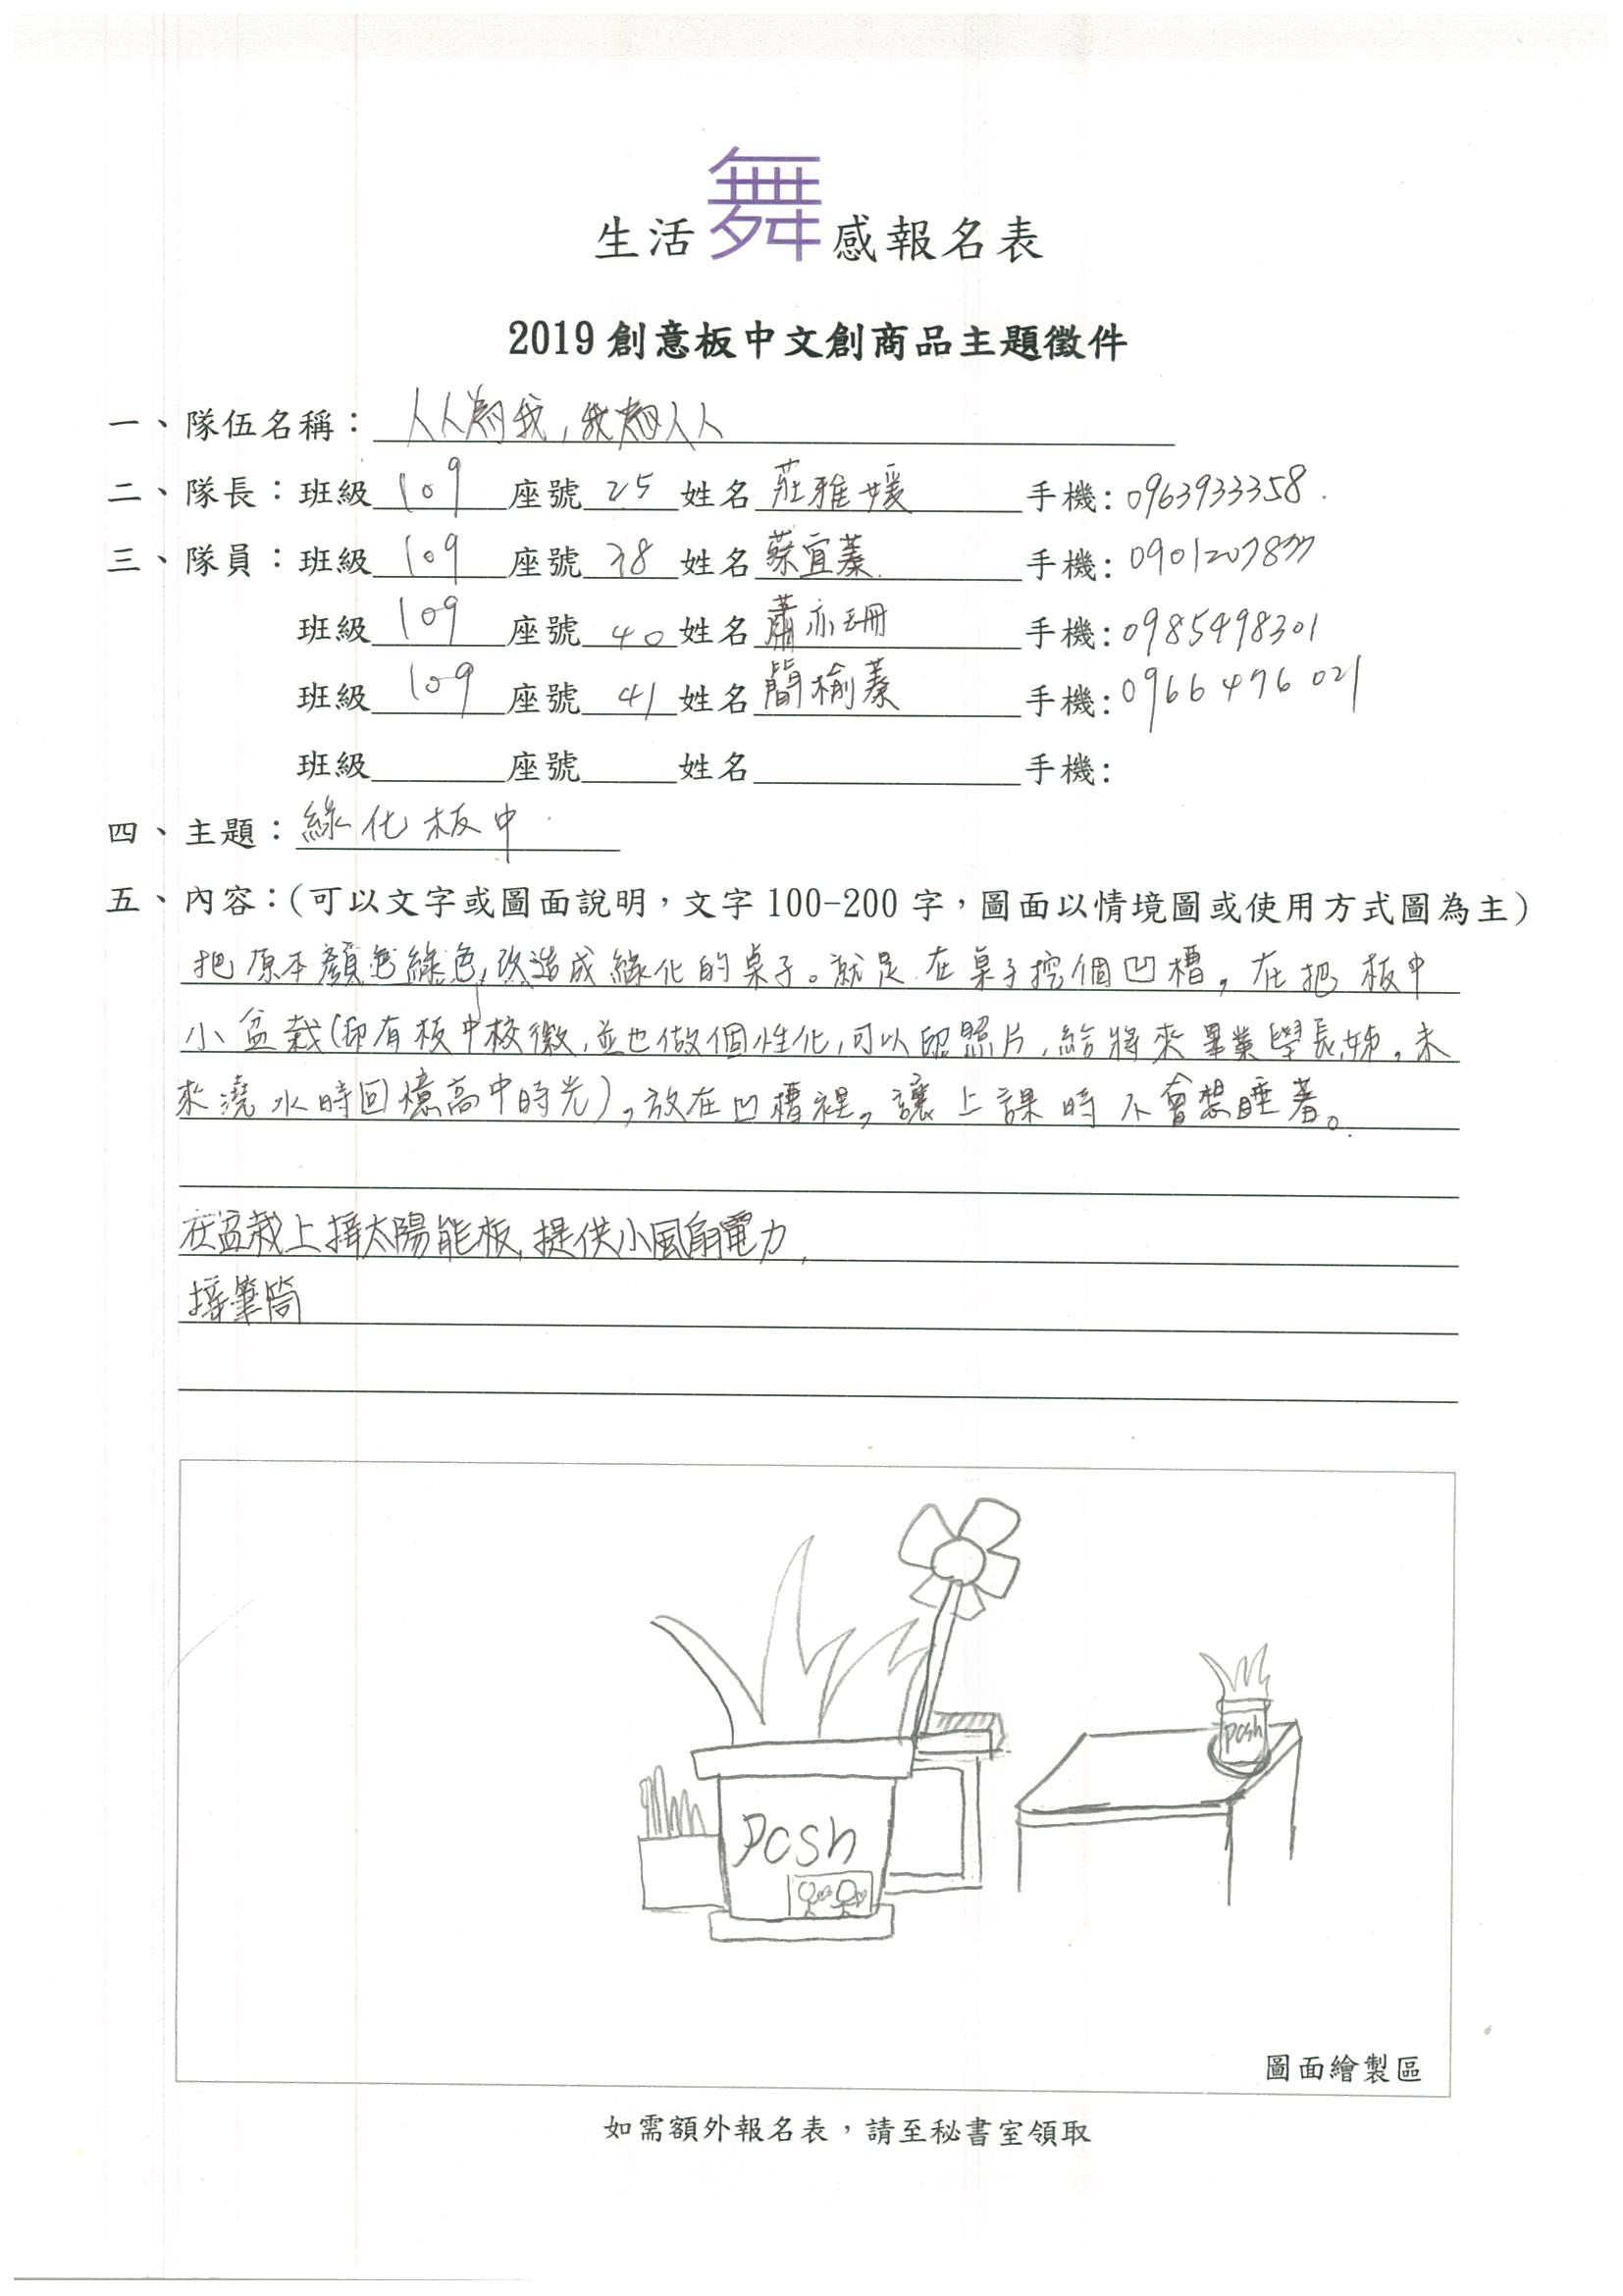 生活舞感報名表
2019創意板中文創商品主題徵件
一、隊伍名稱：人人為我，我為人人
二、隊長：班級109座號25姓名莊雅媛手機：0963933358
三、隊員：班級109座號38姓名蔡宜蓁手機：0901207877
班級109座號40姓名蕭亦珊手機：0985498301
班級109座號41姓名簡榆蓁手機：0966476021
班級座號姓名手機：
四、主題：綠化板中
五、內容：（可以文字或圖面說明，文字100-200字，圖面以情境圖或使用方式圖為主）
把原本顏色綠色，改造成綠化的桌子。就是在桌子挖個凹槽，在把板中
小盆栽（印有板中校徽，並也做個性化，可以印照片，給將來畢業學長姊，未
來澆水時回憶高中時光），放在凹槽裡，讓上課時不會想睡著。
在盆栽上接太陽能板，提供小風扇電力，
接筆筒
pcsh
pcsh
圖面繪製區
如需額外報名表，請至秘書室領取